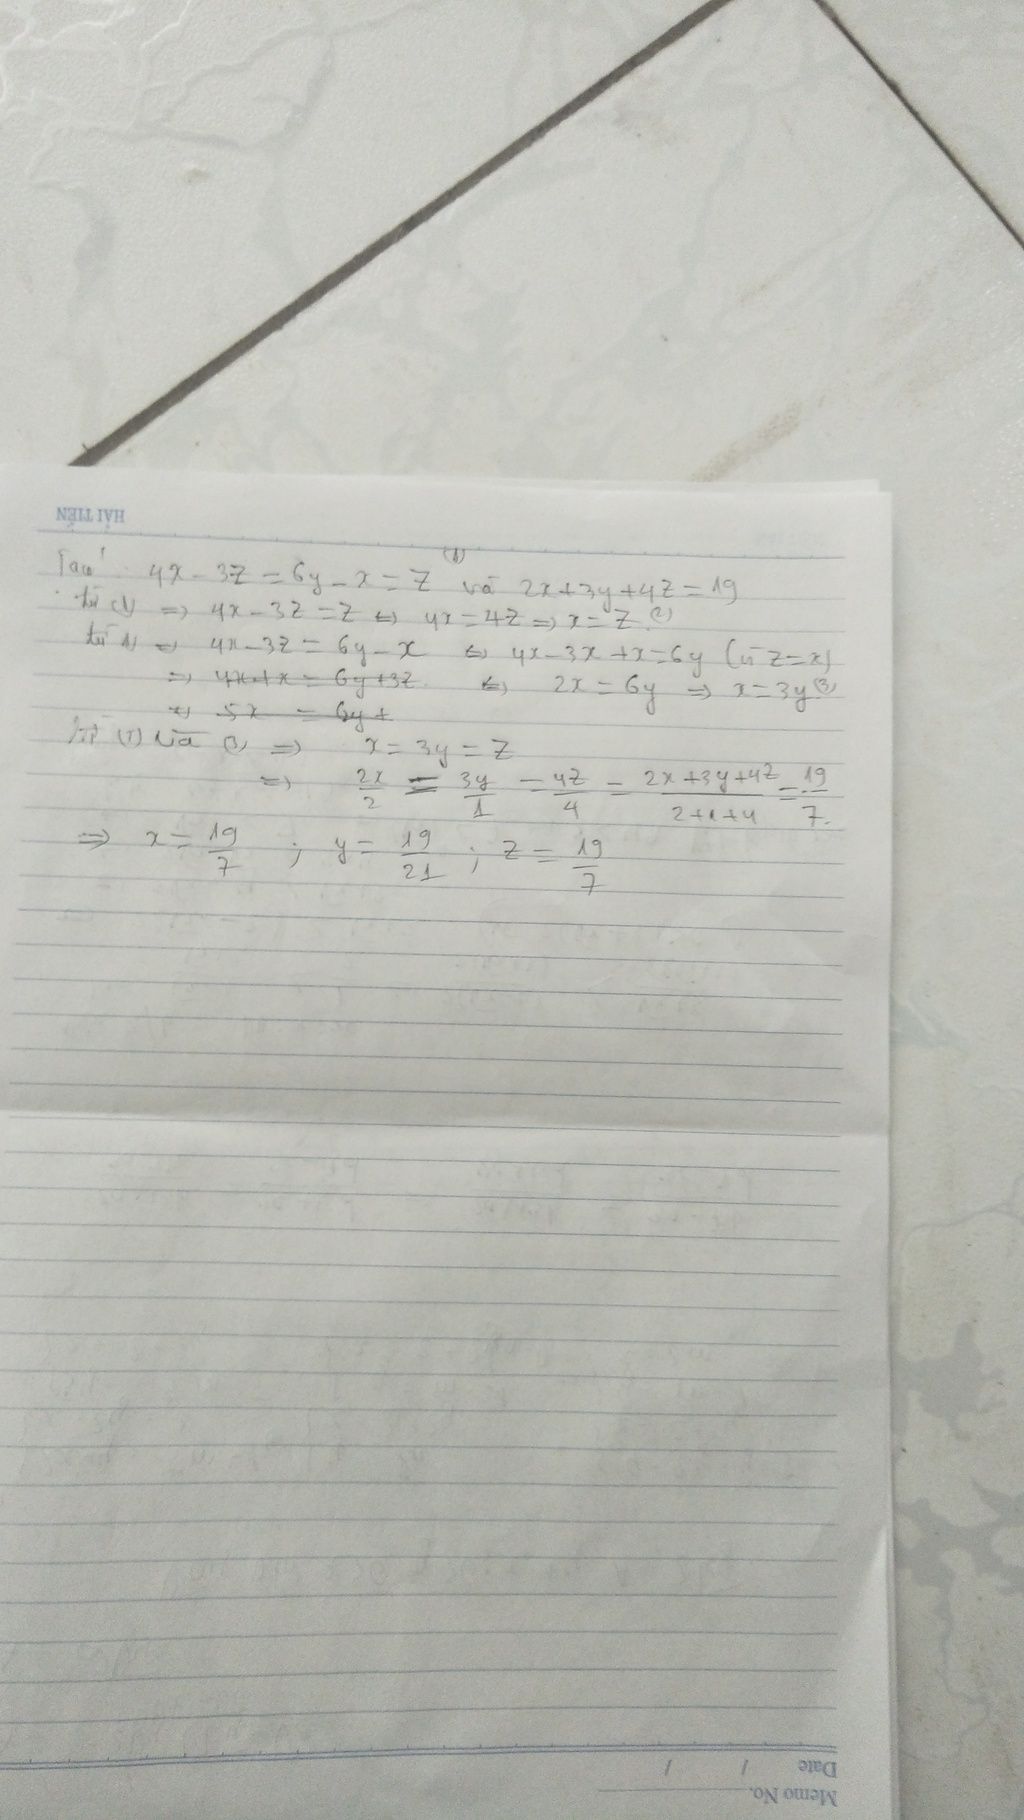 HẢI TIẾN
Ta có 4x - 3z = 6y - x = z (1) và 2x + 3y + 4z = 19
từ (1) => 4x - 3z = z <=> 4x = 4z => x = z (2)
từ (1) => 4x - 3z = 6y - x <=> 4x - 3x + x = 6y (vì z = x)
=> 4x + x = 6y + 3z <=> 2x = 6y => x = 3y (3)
=> 5x = 6y +
từ (1) và (3) => x = 3y = z
=> 2x/2 = 3y/1 = 4z/4 = 2x+3y+4z/2+1+4 = 19/7.
=> x = 19/7 ; y = 19/21 ; z = 19/7
Date / /
Memo No.